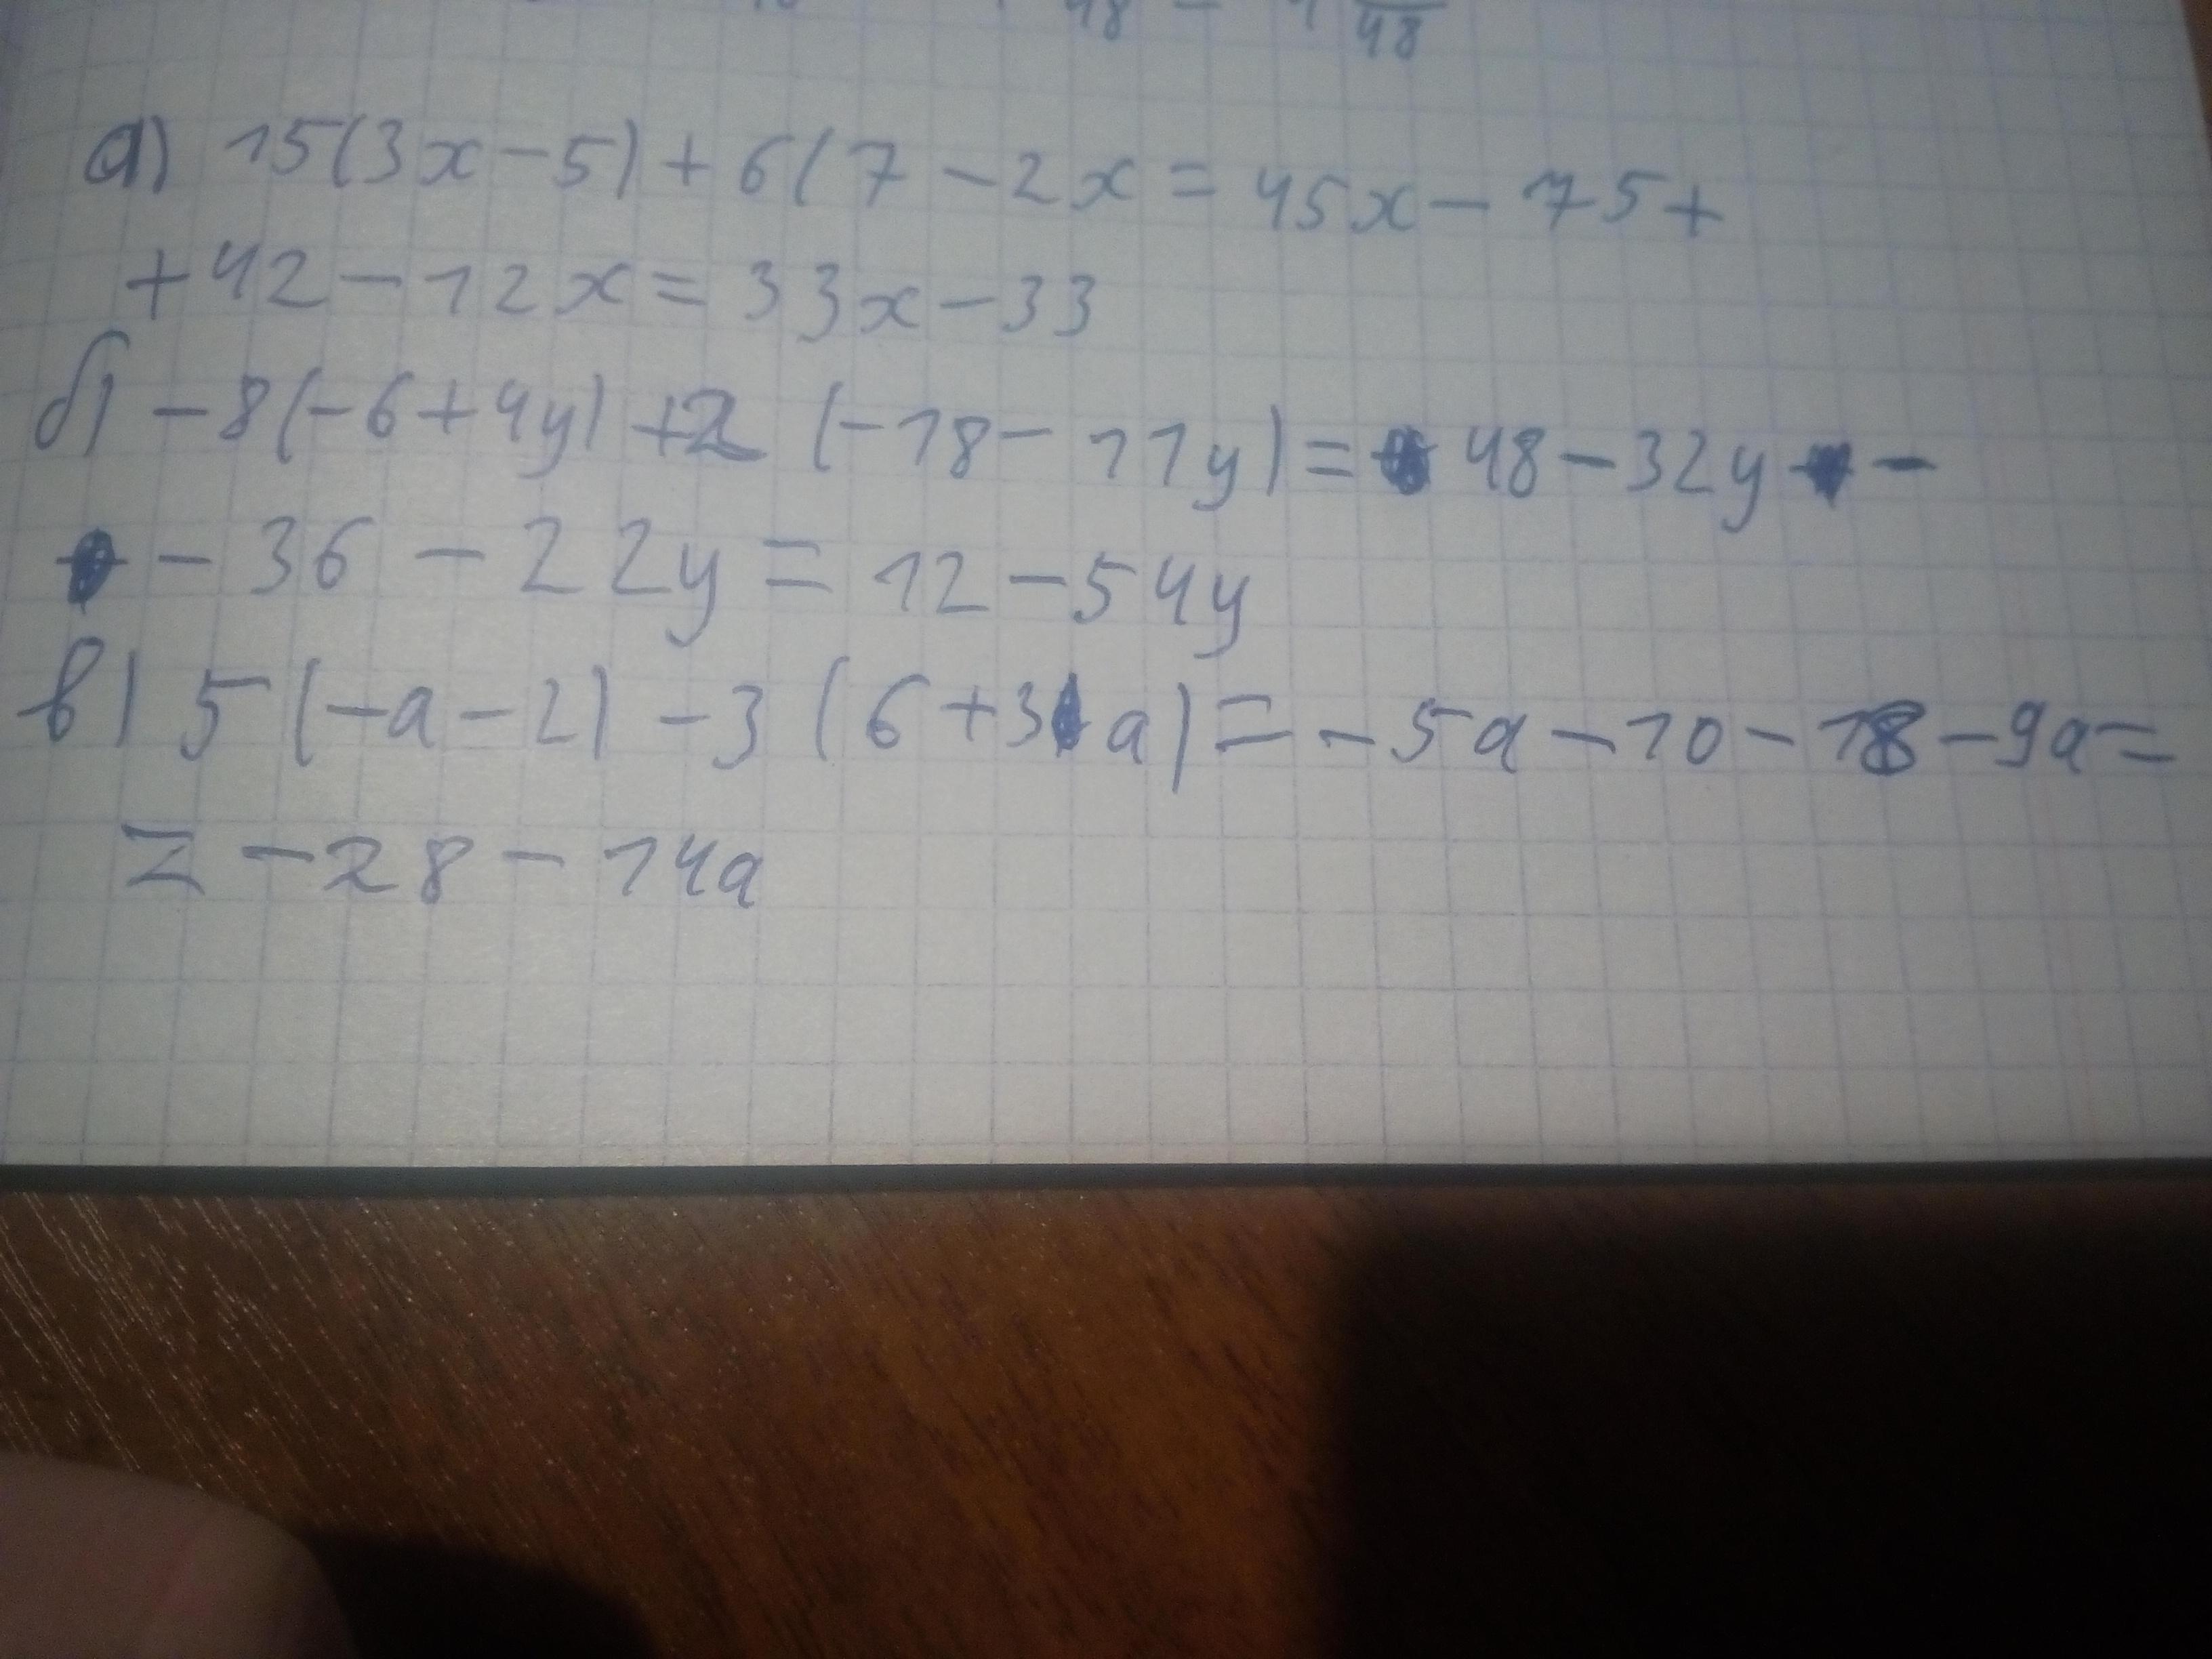 48 - 1 48
а) 15(3x-5)+6(7-2x=45x-75+
+42-12x=33x-33
б) -8(-6+4y)+2(-18-11y)=48-32y-
-36-22y=12-54y
в) 5(-a-2)-3(6+3a)=-5a-10-18-9a=
= -28-14a